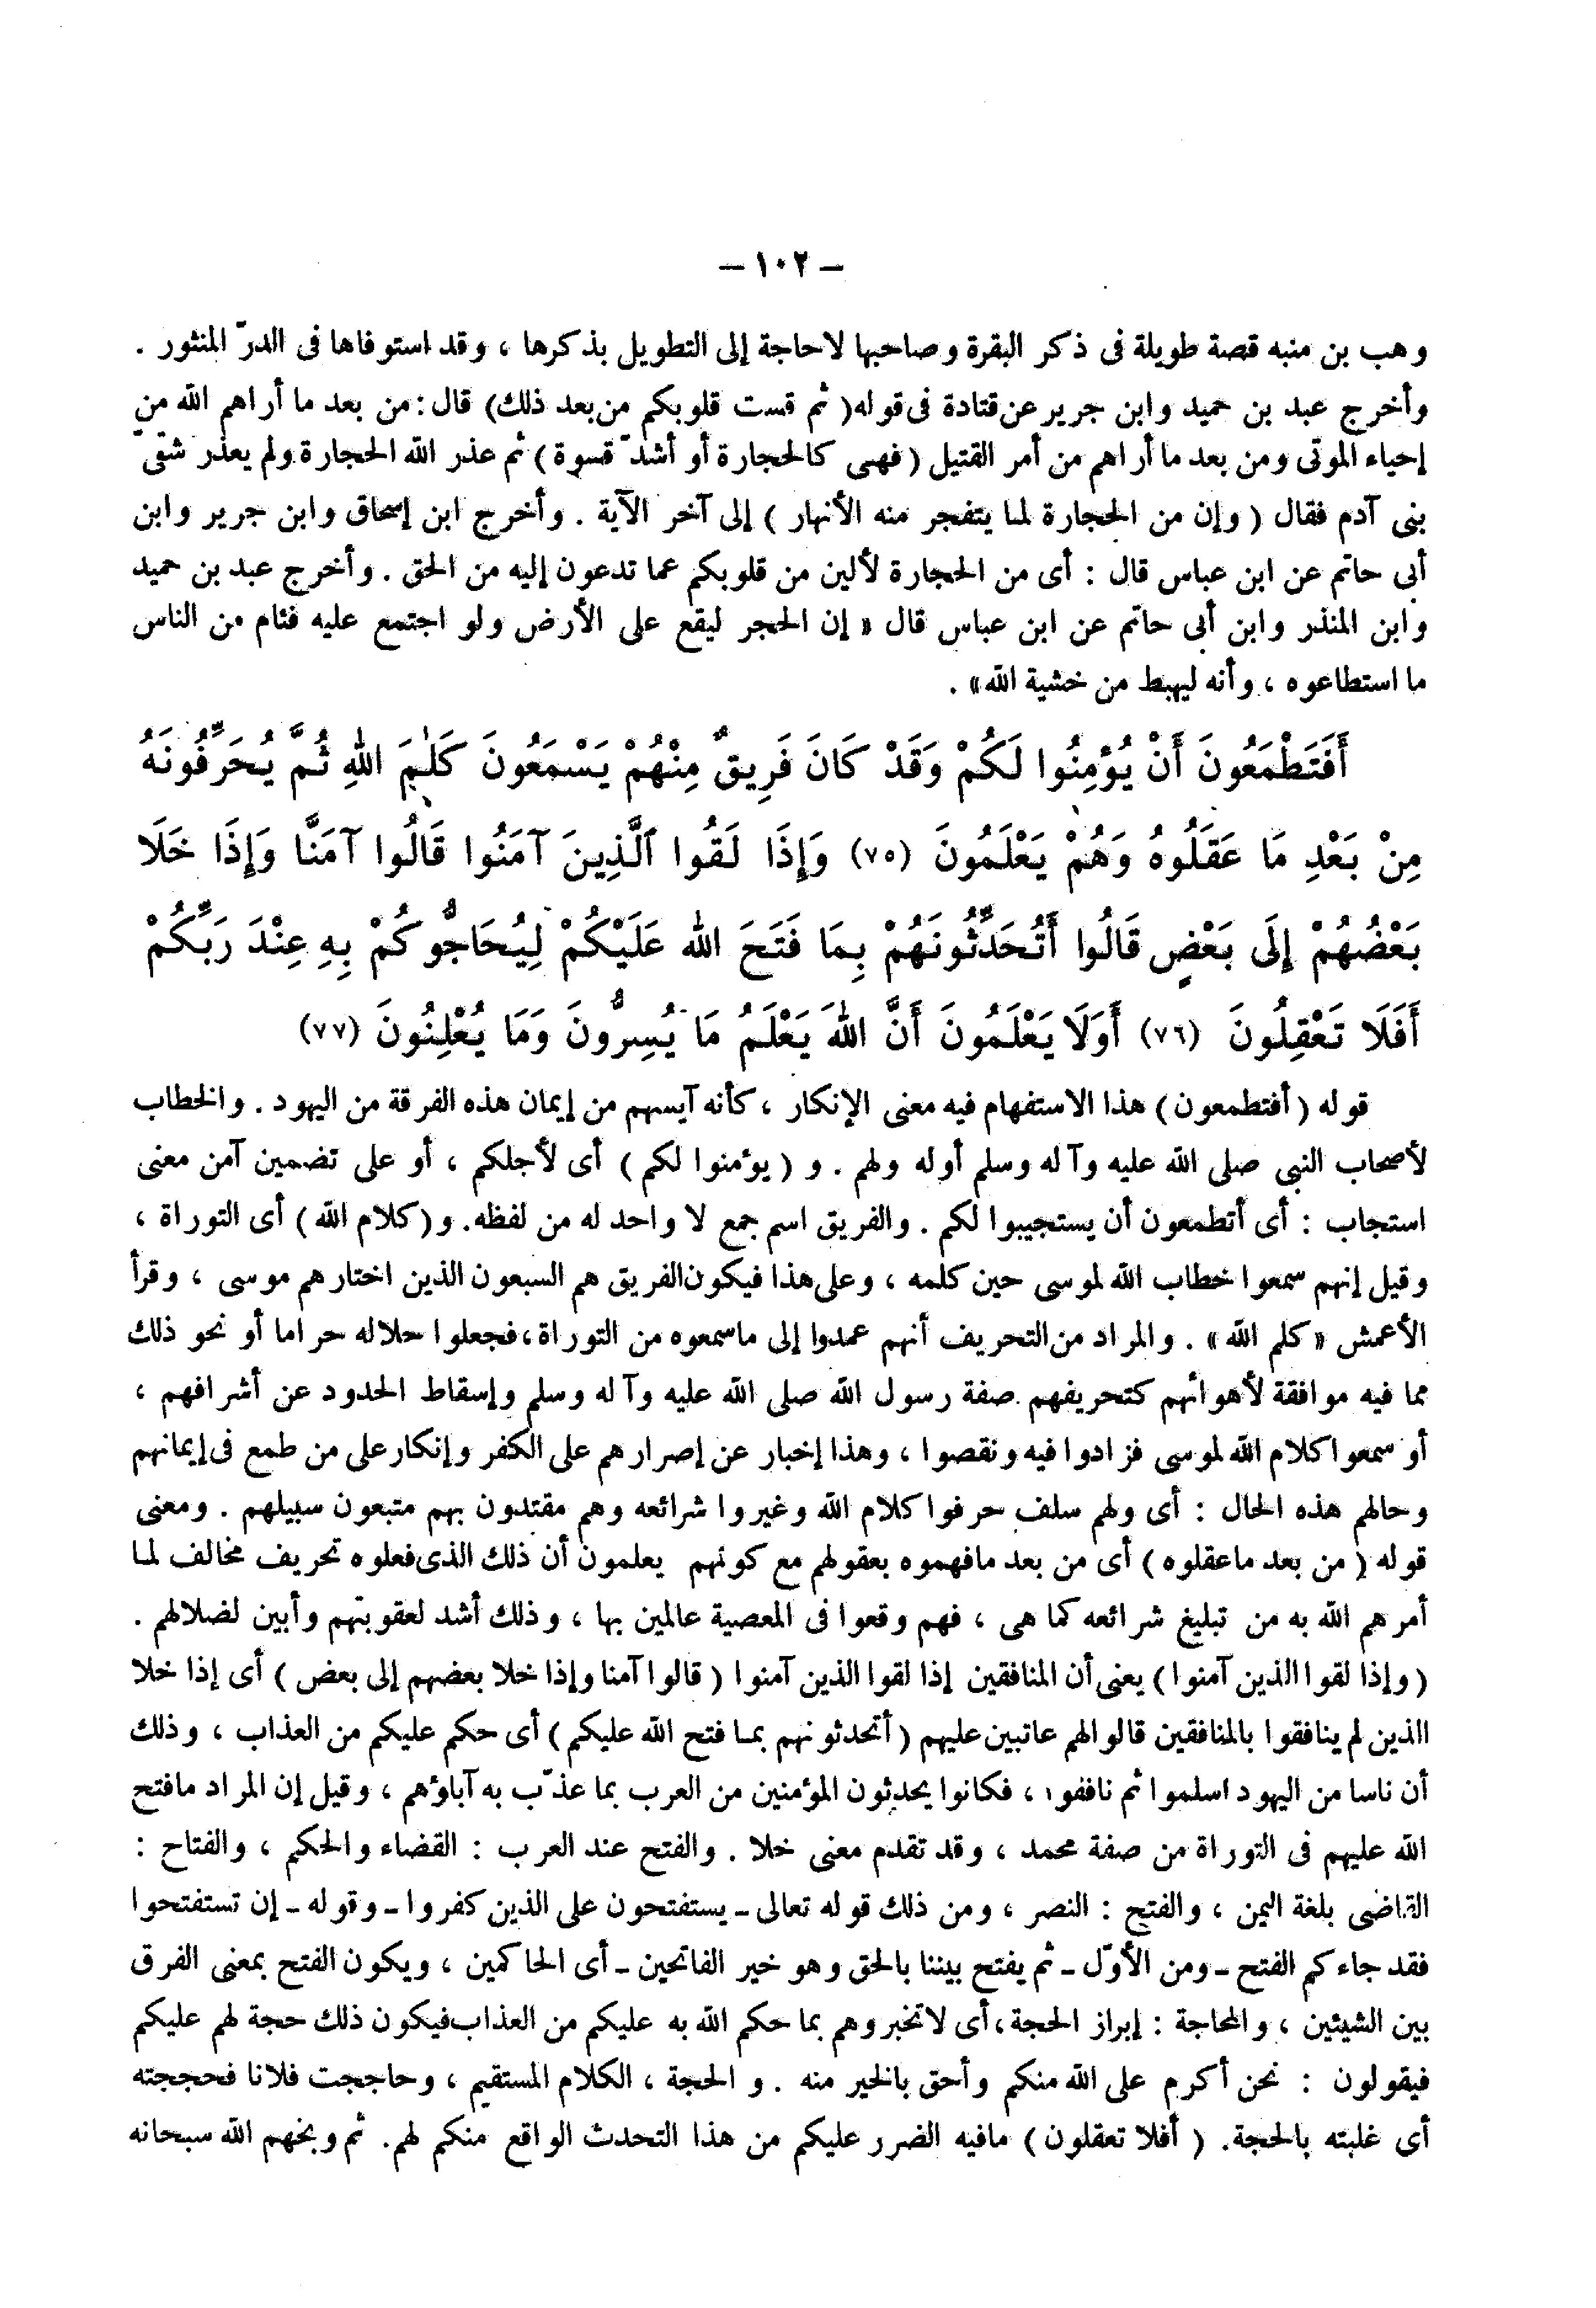 - ١٠٢ -
وهب بن منبه قصة طويلة فى ذكر البقرة وصاحبها لاحاجة إلى التطويل بذكرها ، وقد استوفاها فى الدرّ المنثور .
وأخرج عبد بن حميد وابن جرير عن قتادة فى قوله ( ثم قست قلوبكم من بعد ذلك ) قال : من بعد ما أراهم الله من
إحياء الموتى ومن بعد ما أراهم من أمر القتيل ( فهى كالحجارة أو أشدّ قسوة ) ثم عذر الله الحجارة ولم يعذر شقىّ
بنى آدم فقال ( وإن من الحجارة لما يتفجر منه الأنهار ) إلى آخر الآية . وأخرج ابن إسحاق وابن جرير وابن
أبى حاتم عن ابن عباس قال : أى من الحجارة لألين من قلوبكم عما تدعون إليه من الحق . وأخرج عبد بن حميد
وابن المنذر وابن أبى حاتم عن ابن عباس قال « إن الحجر ليقع على الأرض ولو اجتمع عليه فئام من الناس
ما استطاعوه ، وأنه ليهبط من خشية الله » .
أَفَتَطْمَعُونَ أَنْ يُؤْمِنُوا لَكُمْ وَقَدْ كَانَ فَرِيقٌ مِنْهُمْ يَسْمَعُونَ كَلٰمَ اللهِ ثُمَّ يُحَرِّفُونَهُ
مِنْ بَعْدِ مَا عَقَلُوهُ وَهُمْ يَعْلَمُونَ (٧٥) وَإِذَا لَقُوا ٱلَّذِينَ آمَنُوا قَالُوا آمَنَّا وَإِذَا خَلَا
بَعْضُهُمْ إِلَى بَعْضٍ قَالُوا أَتُحَدِّثُونَهُمْ بِمَا فَتَحَ الله عَلَيْكُمْ لِيُحَاجُّوكُمْ بِهِ عِنْدَ رَبِّكُمْ
أَفَلَا تَعْقِلُونَ (٧٦) أَوَلَا يَعْلَمُونَ أَنَّ اللهَ يَعْلَمُ مَا يُسِرُّونَ وَمَا يُعْلِنُونَ (٧٧)
قوله ( أفتطمعون ) هذا الاستفهام فيه معنى الإنكار ، كأنه آيسهم من إيمان هذه الفرقة من اليهود . والخطاب
لأصحاب النبى صلى الله عليه وآله وسلم أوله ولهم . و ( يؤمنوا لكم ) أى لأجلكم ، أو على تضمين آمن معنى
استجاب : أى أتطمعون أن يستجيبوا لكم . والفريق اسم جمع لا واحد له من لفظه . و ( كلام الله ) أى التوراة ،
وقيل إنهم سمعوا خطاب الله لموسى حين كلمه ، وعلى هذا فيكون الفريق هم السبعون الذين اختارهم موسى ، وقرأ
الأعمش « كلم الله » . والمراد من التحريف أنهم عمدوا إلى ماسمعوه من التوراة ، فجعلوا حلاله حراما أو نحو ذلك
مما فيه موافقة لأهوائهم كتحريفهم صفة رسول الله صلى الله عليه وآله وسلم وإسقاط الحدود عن أشرافهم ،
أو سمعوا كلام الله لموسى فزادوا فيه ونقصوا ، وهذا إخبار عن إصرارهم على الكفر وإنكار على من طمع فى إيمانهم
وحالهم هذه الحال : أى ولهم سلف حرفوا كلام الله وغيروا شرائعه وهم مقتدون بهم متبعون سبيلهم . ومعنى
قوله ( من بعد ماعقلوه ) أى من بعد مافهموه بعقولهم مع كونهم يعلمون أن ذلك الذى فعلوه تحريف مخالف لما
أمرهم الله به من تبليغ شرائعه كما هى ، فهم وقعوا فى المعصية عالمين بها ، وذلك أشد لعقوبتهم وأبين لضلالهم .
( وإذا لقوا الذين آمنوا ) يعنى أن المنافقين إذا لقوا الذين آمنوا ( قالوا آمنا وإذا خلا بعضهم إلى بعض ) أى إذا خلا
الذين لم ينافقوا بالمنافقين قالوا لهم عاتبين عليهم ( أتحدثونهم بما فتح الله عليكم ) أى حكم عليكم من العذاب ، وذلك
أن ناسا من اليهود اسلموا ثم نافقوا ، فكانوا يحدثون المؤمنين من العرب بما عذّب به آباؤهم ، وقيل إن المراد مافتح
الله عليهم فى التوراة من صفة محمد ، وقد تقدم معنى خلا . والفتح عند العرب : القضاء والحكم ، والفتاح :
القاضى بلغة اليمن ، والفتح : النصر ، ومن ذلك قوله تعالى - يستفتحون على الذين كفروا - وقوله - إن تستفتحوا
فقد جاءكم الفتح - ومن الأوّل - ثم يفتح بيننا بالحق وهو خير الفاتحين - أى الحاكمين ، ويكون الفتح بمعنى الفرق
بين الشيئين ، والمحاجة : إبراز الحجة ، أى لاتخبروهم بما حكم الله به عليكم من العذاب فيكون ذلك حجة لهم عليكم
فيقولون : نحن أكرم على الله منكم وأحق بالخير منه . و الحجة ، الكلام المستقيم ، وحاججت فلانا فحججته
أى غلبته بالحجة . ( أفلا تعقلون ) مافيه الضرر عليكم من هذا التحدث الواقع منكم لهم . ثم وبخهم الله سبحانه